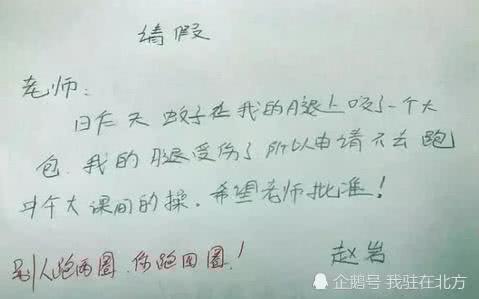 请假
老师:
昨天蚊子在我的腿上咬了一个大
包.我的腿受伤了所以申请不去跑
个大课间的操.希望老师批准!
别人跑两圈.你跑四圈!
赵岩
企鹅号 我驻在北方